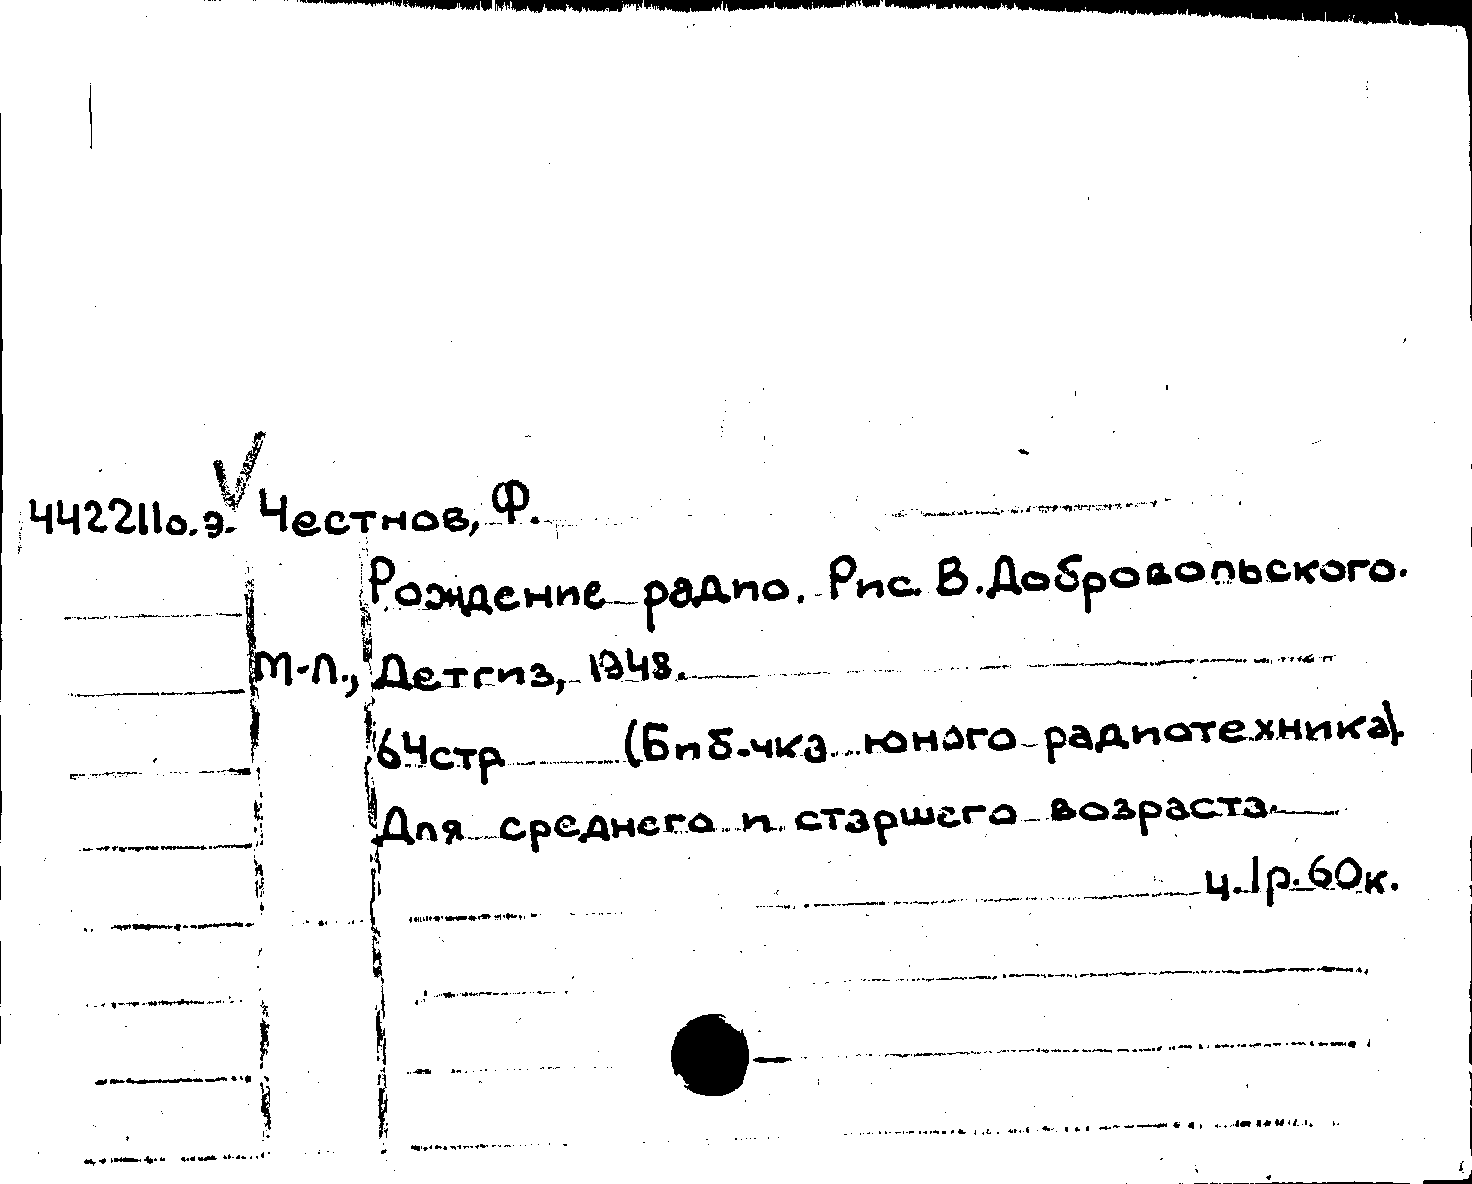 442211о.э. Честнов, Ф.
Рождение радио. Рис. В. Добровольского.
М-Л., Детгиз, 1948.
64стр (Биб-чка юного радиотехника).
Для среднего и старшего возраста.
ц. 1р. 60к.